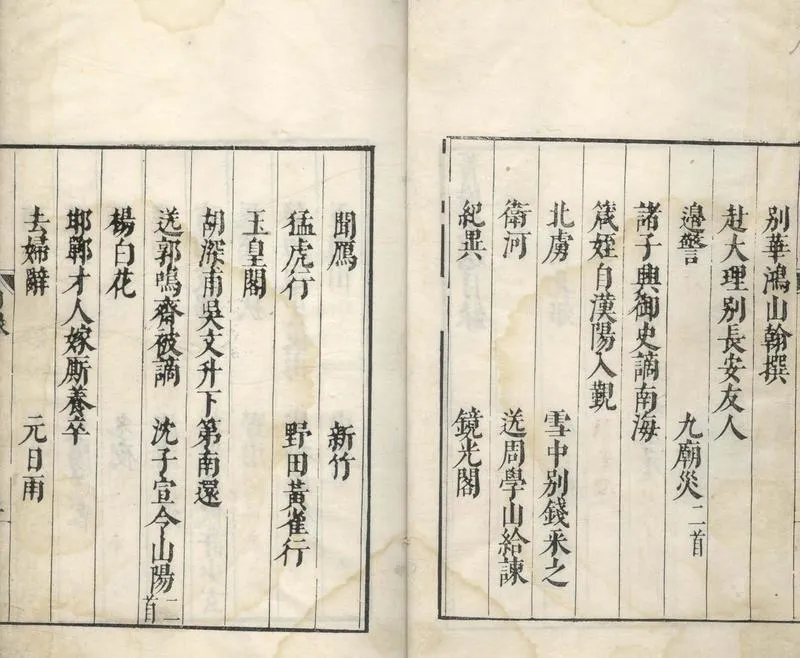 別華鴻山翰撰
赴大理別長安友人
邉警 九廟災二首
諸子興御史謫南海
箴姪自漢陽入覲
北虜 雪中別錢采之
衛河 送周學山給諫
紀異 鏡光閣
聞鴈 新竹
猛虎行 野田黃雀行
玉皇閣
胡深甫吳文升下第南還
送郭鳴齋被謫 沈子宣令山陽二首
楊白花
邯鄲才人嫁厮養卒
去婦辭 元日雨